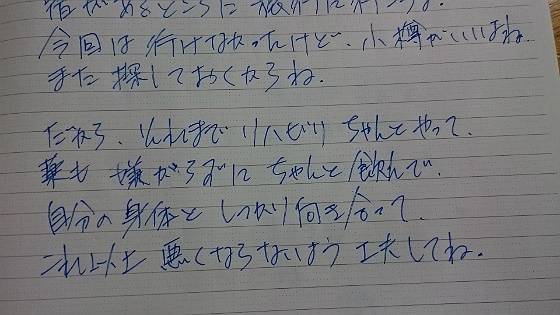 宿があるところに旅行に行こうね。
今回は行けてなかったけど、小樽がいいよね。
また探しておくからね。
だから、それまでリハビリちゃんとやって、
薬も嫌がらずにちゃんと飲んで、
自分の身体としっかり向き合って、
これ以上悪くならないよう工夫してね。